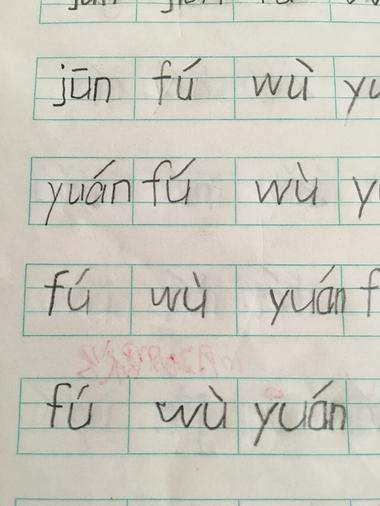 jūn fú wù yu
yuán fú wù y
fú wù yuán f
fú wù yuán